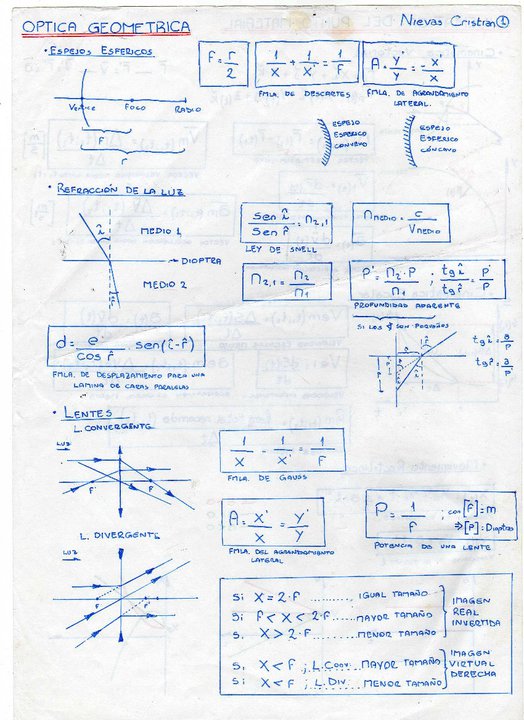 OPTICA GEOMETRICA
Nievas Cristian 1
• ESPEJOS ESFERICOS
F = r/2
1/X + 1/X' = 1/F
A = y'/y = -x'/x
FMLA. DE DESCARTES
FMLA. DE AGRANDAMIENTO LATERAL.
VERTICE
FOCO
RADIO
F
r
ESPEJO ESFERICO CONVEXO
ESPEJO ESFERICO CÓNCAVO
• REFRACCIÓN DE LA LUZ
î
MEDIO 1
DIOPTRA
MEDIO 2
r̂
sen î / sen r̂ = n2,1
LEY DE SNELL
n MEDIO = c / V MEDIO
n2,1 = n2/n1
P' = n2·P / n1 ; tg î / tg r̂ = P'/P
PROFUNDIDAD APARENTE
SI LOS ∡ SON PEQUEÑOS
tg î = a/P
tg r̂ = a/P'
d = e / cos r̂ . sen(î-r̂)
FMLA. DE DESPLAZAMIENTO PARA UNA LAMINA DE CARAS PARALELAS
• LENTES
L. CONVERGENTE
LUZ
F'
F
1/X - 1/X' = 1/F
FMLA. DE GAUSS
A = X'/X = Y'/Y
FMLA. DEL AGRANDAMIENTO LATERAL
P = 1/F ; con [F] = m
⇒ [P] = Dioptras
POTENCIA DE UNA LENTE
L. DIVERGENTE
LUZ
F
F'
Si X = 2·F .......... IGUAL TAMAÑO
Si F < X < 2·F ...... MAYOR TAMAÑO
Si X > 2·F .......... MENOR TAMAÑO
IMAGEN REAL INVERTIDA
Si X < F ; L. Conv. MAYOR TAMAÑO
Si X < F ; L. Div. MENOR TAMAÑO
IMAGEN VIRTUAL DERECHA